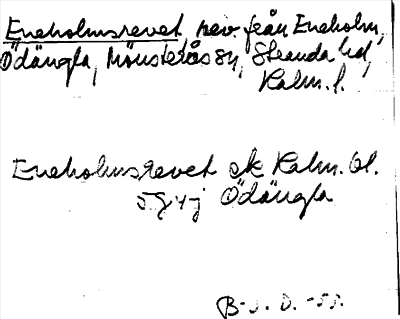 Eneholmsrevet, rev från Eneholm,
Ödängla, Mönsterås sn, Stranda hd,
Kalm. l.
Eneholmsrevet ek Kalm. bl.
5g4j Ödängla